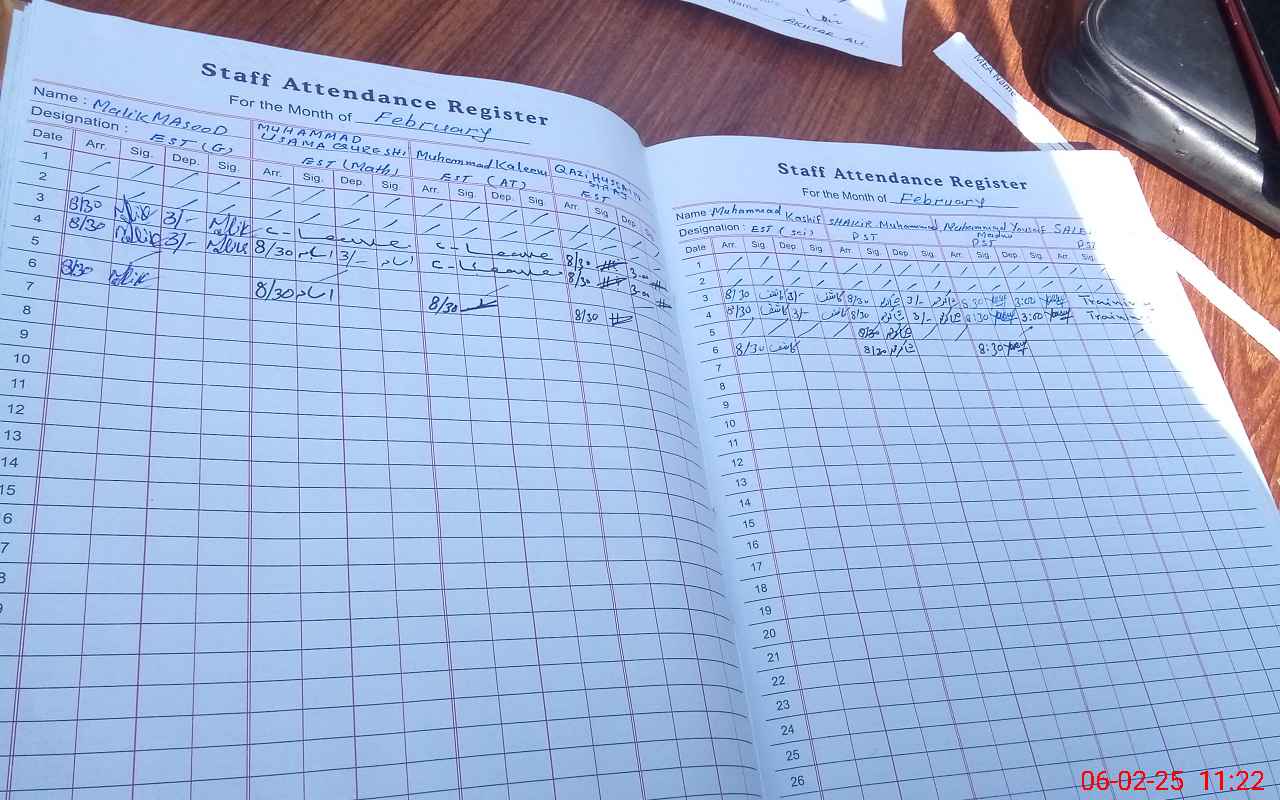 Name
AKHTAR ALI
MEA Name
Staff Attendance Register
For the Month of February
Name : Malik MASOOD MUHAMMAD USAMA QURESHI Muhammad Kaleem QAZI HUSSAIN
Designation : EST (G) EST (Math) EST (AT) EST
Date Arr. Sig. Dep. Sig. Arr. Sig. Dep. Sig. Arr. Sig. Dep. Sig. Arr. Sig Dep.
1
2
3 8/30 Malik 3/- Malik C-Leave C-Leave 8/30 3:00
4 8/30 Malik 3/- Malik 8/30 اسامہ 3/- اسامہ C-Leave 8/30 3:00
5
6 8/30 Malik 8/30 اسامہ 8/30 8/30
7
8
9
10
11
12
13
14
15
6
7
8
9
Staff Attendance Register
For the Month of February
Name Muhammad Kashif SHAKIR Muhammad Muhammad Yousaf SALE
Designation : EST (Sci) PST PST PST
Date Arr. Sig. Dep. Sig. Arr. Sig. Dep. Sig. Arr. Sig. Dep. Sig. Arr. Sig.
1
2
3 8/30 کاشف 3/- کاشف 8/30 3/- 8:30 3:00 Training
4 8/30 کاشف 3/- کاشف 8/30 3/- 8:30 3:00 Training
5 8/30
6 8/30 کاشف 8/30 8:30
7
8
9
10
11
12
13
14
15
16
17
18
19
20
21
22
23
24
25
26
06-02-25 11:22